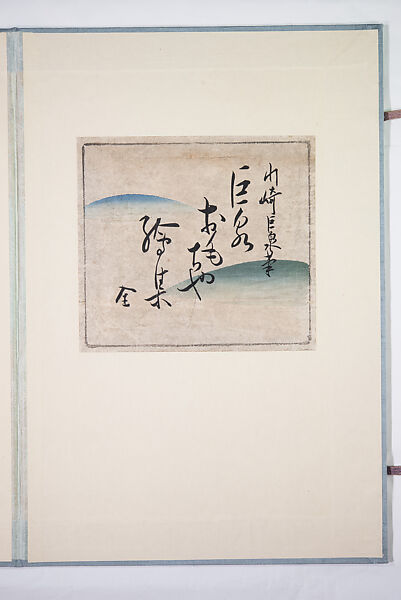 川崎巨泉筆
巨泉
おもちや
繪集
全